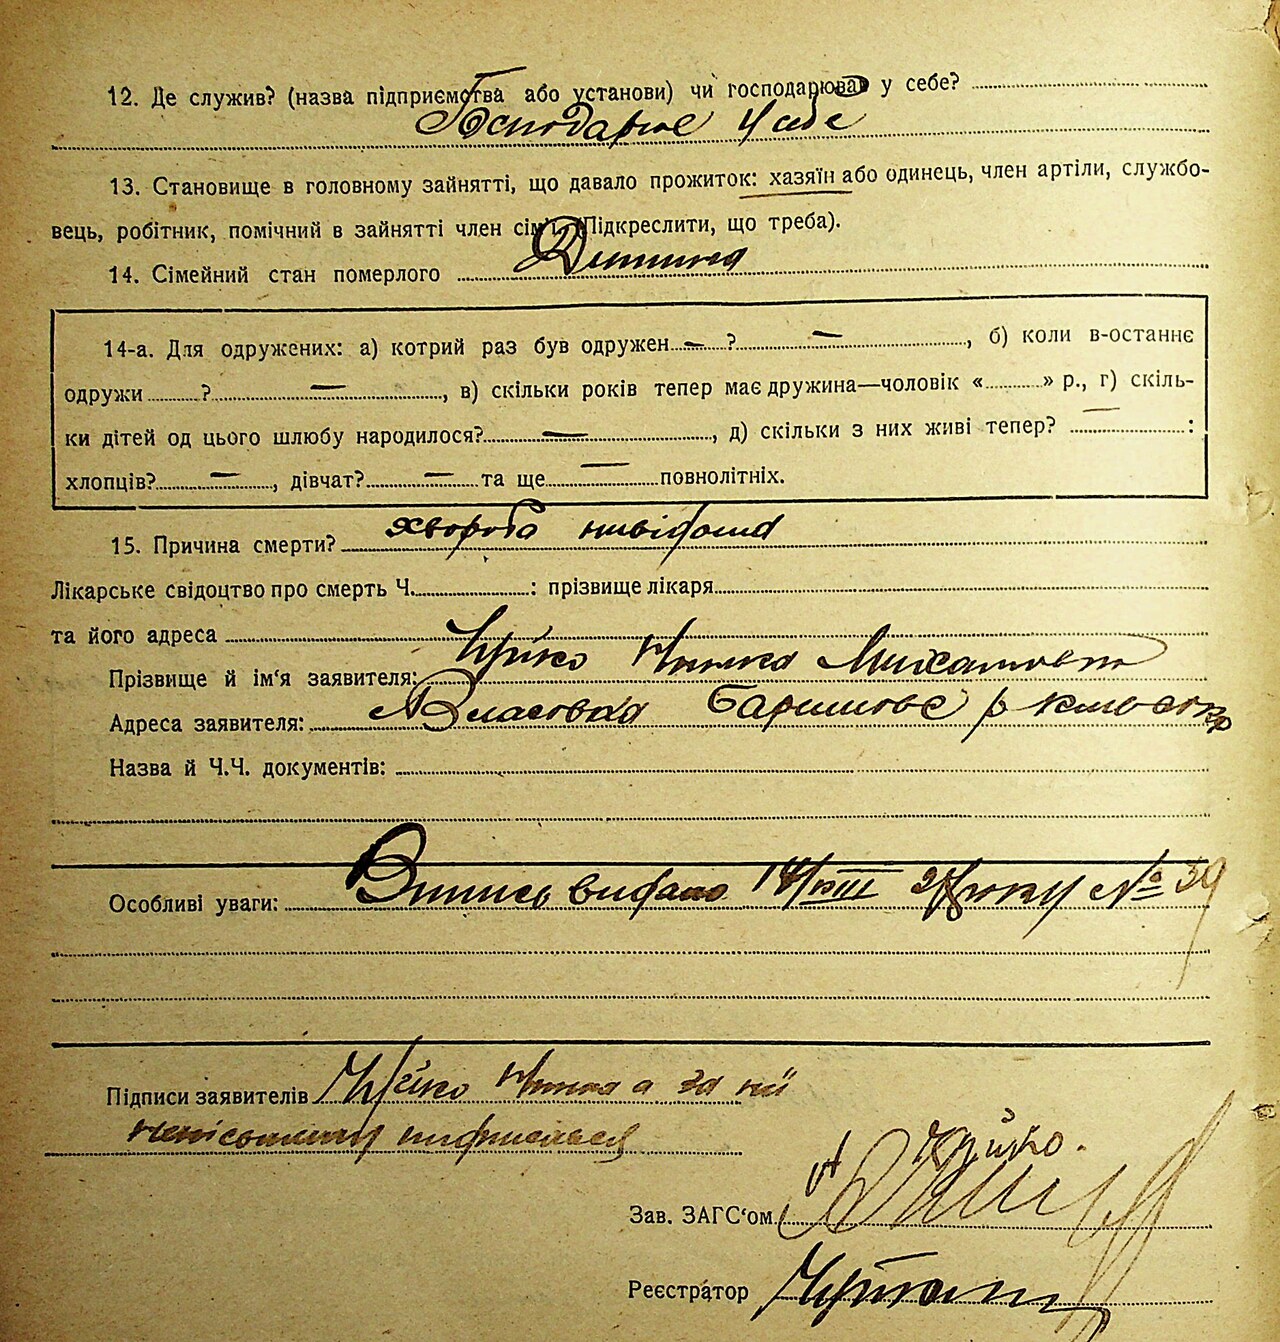 12. Де служив? (назва підприємства або установи) чи господарював у себе?
Господарює у себе
13. Становище в головному зайнятті, що давало прожиток: хазяїн або одинець, член артілі, службо-
вець, робітник, помічний в зайнятті член сім'ї. (Підкреслити, що треба).
14. Сімейний стан померлого Дитина
14-а. Для одружених: а) котрий раз був одружен — ? —, б) коли в-останнє
одружи ? —, в) скільки років тепер має дружина—чоловік « » р., г) скіль-
ки дітей од цього шлюбу народилося? —, д) скільки з них живі тепер? — :
хлопців? —, дівчат? — та ще — повнолітніх.
15. Причина смерти? хвороба невідома
Лікарське свідоцтво про смерть Ч. : прізвище лікаря
та його адреса
Прізвище й ім'я заявителя:
Адреса заявителя: р
Назва й Ч.Ч. документів:
Особливі уваги: Випись видано 14/VIII 28 року № 39
Підписи заявителів а за її
неписьменну підписався
Зав. ЗАГС'ом
Реєстратор